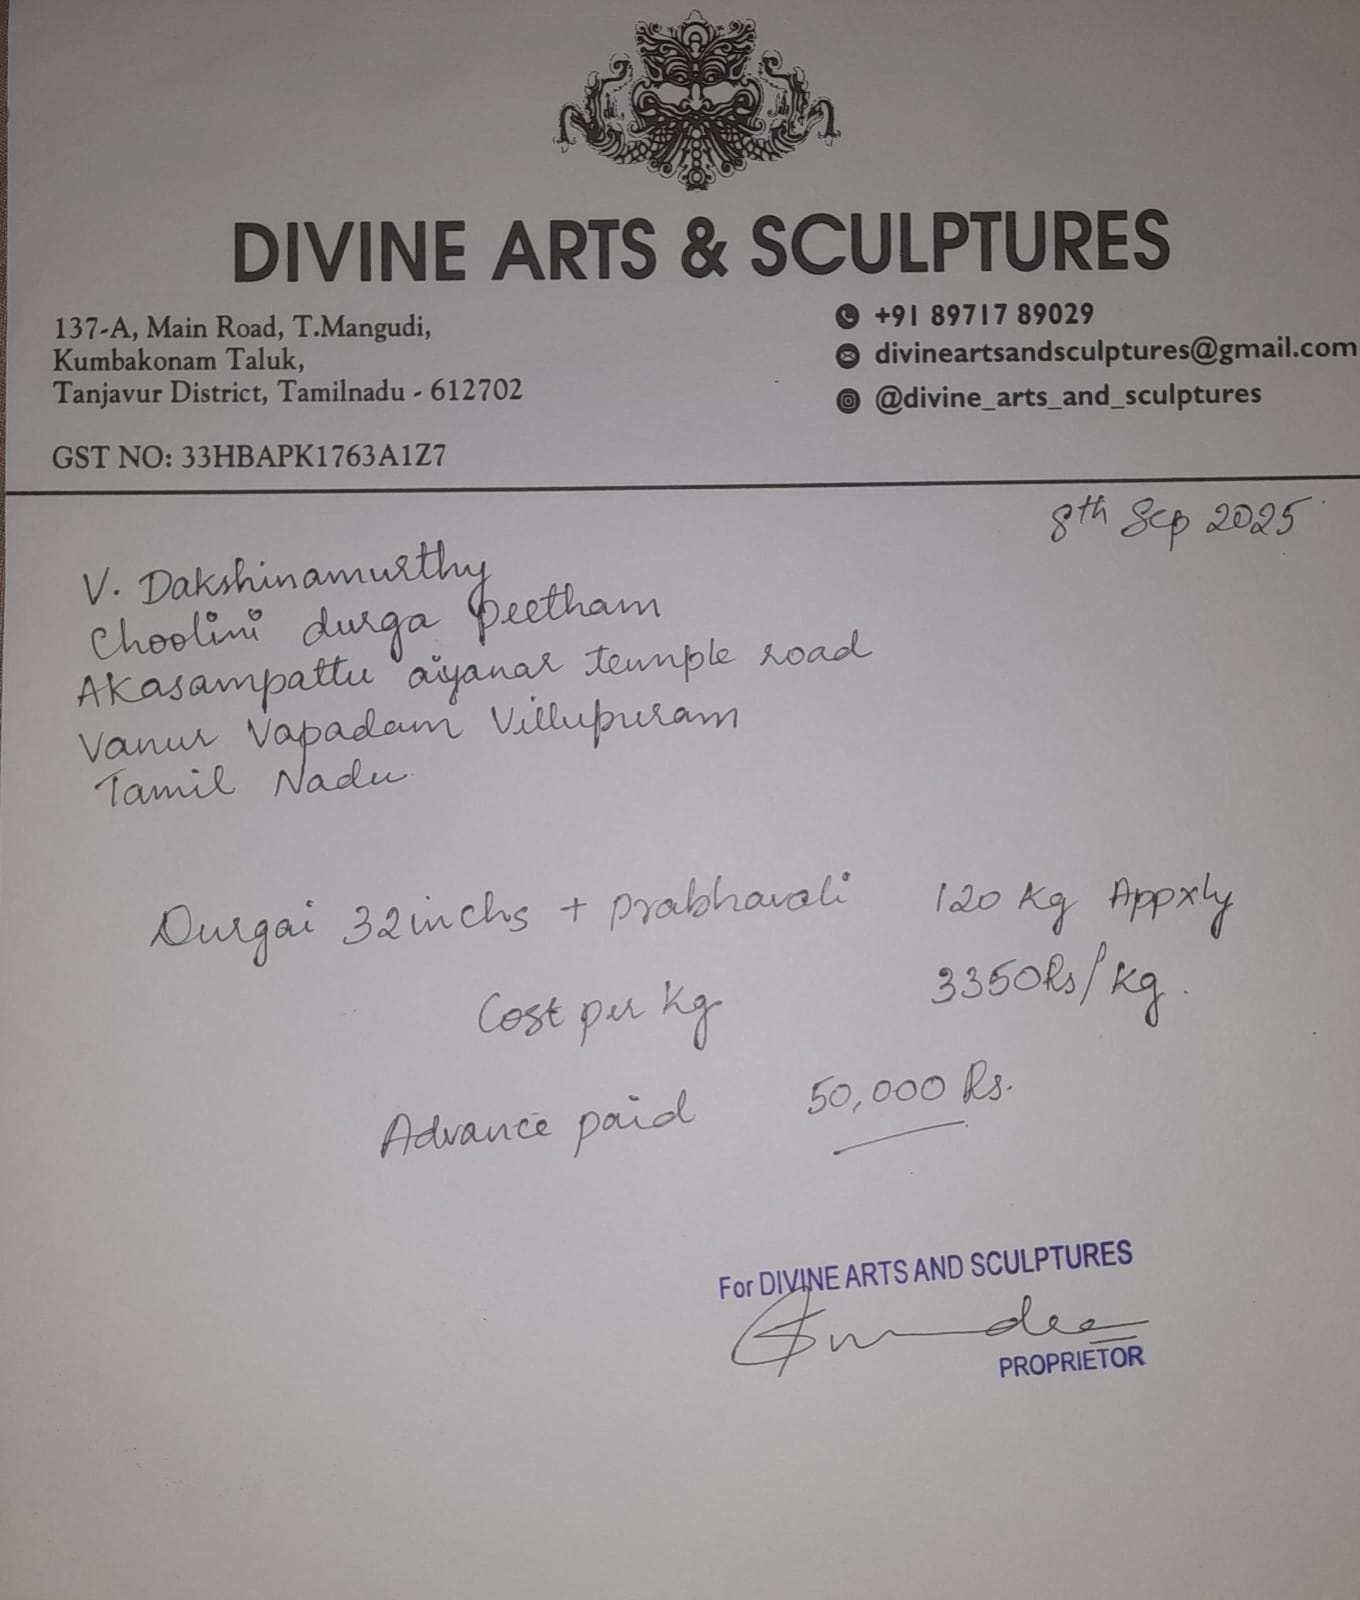 DIVINE ARTS & SCULPTURES
137-A, Main Road, T.Mangudi,
Kumbakonam Taluk,
Tanjavur District, Tamilnadu - 612702
GST NO: 33HBAPK1763A1Z7
+91 89717 89029
divineartsandsculptures@gmail.com
@divine_arts_and_sculptures
8th Sep 2025
V. Dakshinamurthy
Choolini durga peetham
Akasampattu aiyanar temple road
Vanur Vapadam Villupuram
Tamil Nadu
Durgai 32inchs + prabhavali 120 Kg Appxly
Cost per kg 3350Rs/kg.
Advance paid 50,000 Rs.
For DIVINE ARTS AND SCULPTURES
PROPRIETOR